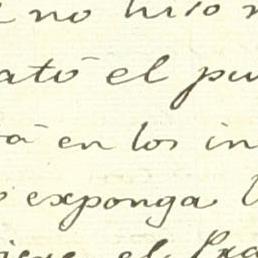 no hizo
ató el pu
en los in
exponga
el Pra